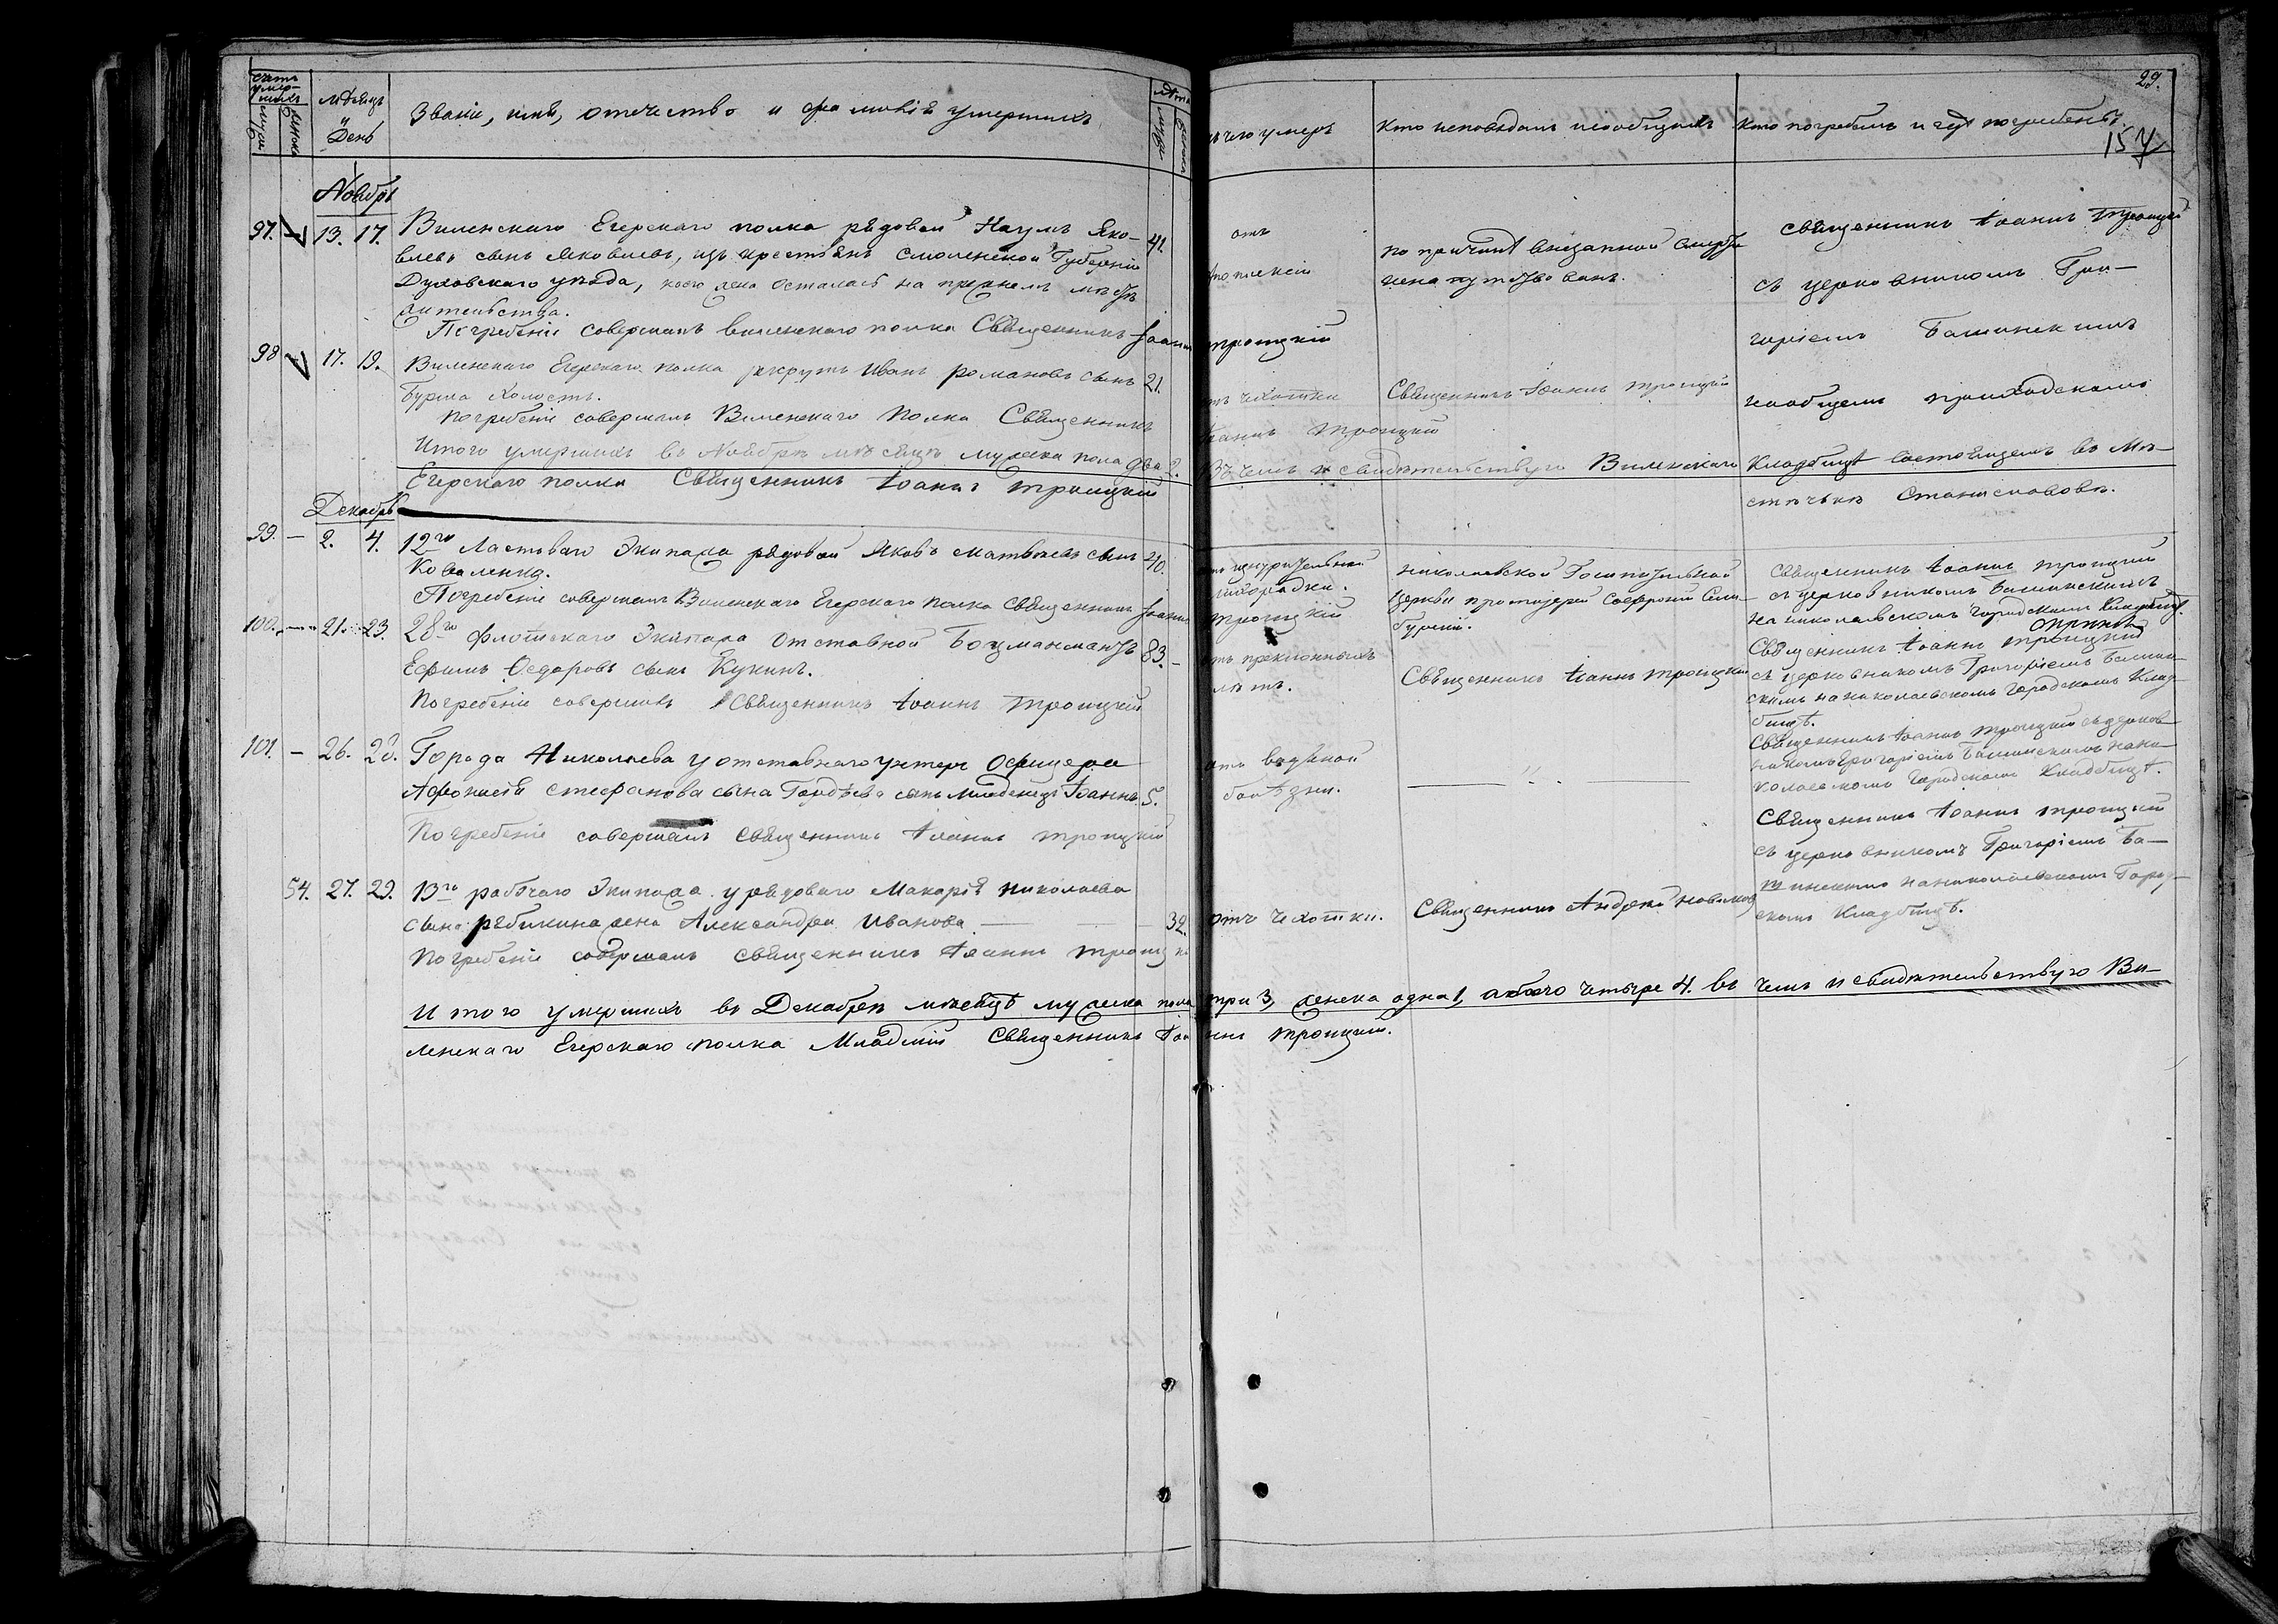 29.
157
Счетъ умер-шихъ
Мужес.
Женска
Мѣсяцъ и День
Званіе, имя, отечество и фамилія умершихъ
Лѣта
Мужес.
Женска
Отъ чего умеръ
Кто исповѣдалъ и пообщилъ
Кто погребалъ и гдѣ погребенъ.
Ноябрь
97. — 13. 17. Виленскаго Егерскаго полка рядовой Наумъ Яко- 41.
влевъ сынъ Яковлевъ, изъ крестьянъ Смоленской Губерніи
Духовскаго уѣзда, коего жена осталась на прежнемъ мѣстѣ
жительства.
Погребеніе совершалъ Виленскаго полка Священникъ Іоаннъ Троицкій
отъ
апоплексіи
по причинѣ внезапной смерти
не напутствованъ.
Священникъ Іоаннъ Троицкій
съ церковникомъ Гри-
горіемъ Башинскимъ
98 17. 19. Виленскаго Егерскаго полка рекрутъ Иванъ Романовъ сынъ 21.
Бурма холостъ.
Погребеніе совершалъ Виленскаго Полка Священникъ Іоаннъ Троицкій
отъ чахотки
Священникъ Іоаннъ Троицкій
на общемъ приходскомъ
кладбищѣ состоящемъ въ Мѣ-
стечкѣ Станиславовѣ.
Итого умершихъ въ Ноябрѣ мѣсяцѣ мужеска пола два 2. Въ чемъ и свидѣтельствую Виленскаго
Егерскаго полка Священникъ Іоаннъ Троицкій
Декабрь
99. — 2. 4. 12го Ластоваго Экипажа рядовой Яковъ Матвѣевъ сынъ 40.
Коваленко.
Погребеніе совершалъ Виленскаго Егерскаго полка Священникъ Іоаннъ Троицкій
отъ изнурительной
лихорадки.
Николаевской Госпитальной
Церкви протоіерей Софроній
Священникъ Іоаннъ Троицкій
съ церковникомъ Башинскимъ
на николаевскомъ городскомъ кладбищѣ.
100. — 21. 23. 28го Флотскаго Экипажа отставной Боцманматъ 83. —
Ефимъ Ѳедоровъ сынъ Кукинъ.
Погребеніе совершалъ Священникъ Іоаннъ Троицкій
отъ преклонныхъ
лѣтъ.
Священникъ Іоаннъ Троицкій
Священникъ Іоаннъ Троицкій
съ церковникомъ Григоріемъ Башин-
скимъ на николаевскомъ городскомъ клад-
бищѣ.
101. — 26. 28. Города Николаева у отставнаго унтеръ Офицера
Афонасія Стефанова сына Гордѣева сынъ младенецъ Іоаннъ. 5.
Погребеніе совершалъ Священникъ Іоаннъ Троицкій
отъ водяной
болѣзни.
— " —
Священникъ Іоаннъ Троицкій съ церков-
никомъ Григоріемъ Башинскимъ на ни-
колаевскомъ городскомъ кладбищѣ.
54. 27. 29. 13го рабочаго Экипажа у рядоваго Макарія Николаева
сына Рябикина жена Александра Иванова — 32.
Погребеніе совершалъ Священникъ Іоаннъ Троицкі
отъ чахотки.
Священникъ Андрей Новиковъ
Священникъ Іоаннъ Троицкій
съ церковникомъ Григоріемъ Ба-
шинскимъ на николаевскомъ Город-
скомъ кладбищѣ.
Итого умершихъ въ Декабрѣ мѣсяцѣ мужеска пола три 3, женска одна 1, а обоего четыре 4. въ чемъ и свидѣтельствую Ви-
ленскаго Егерскаго полка Младшій Священникъ Іоаннъ Троицкій.